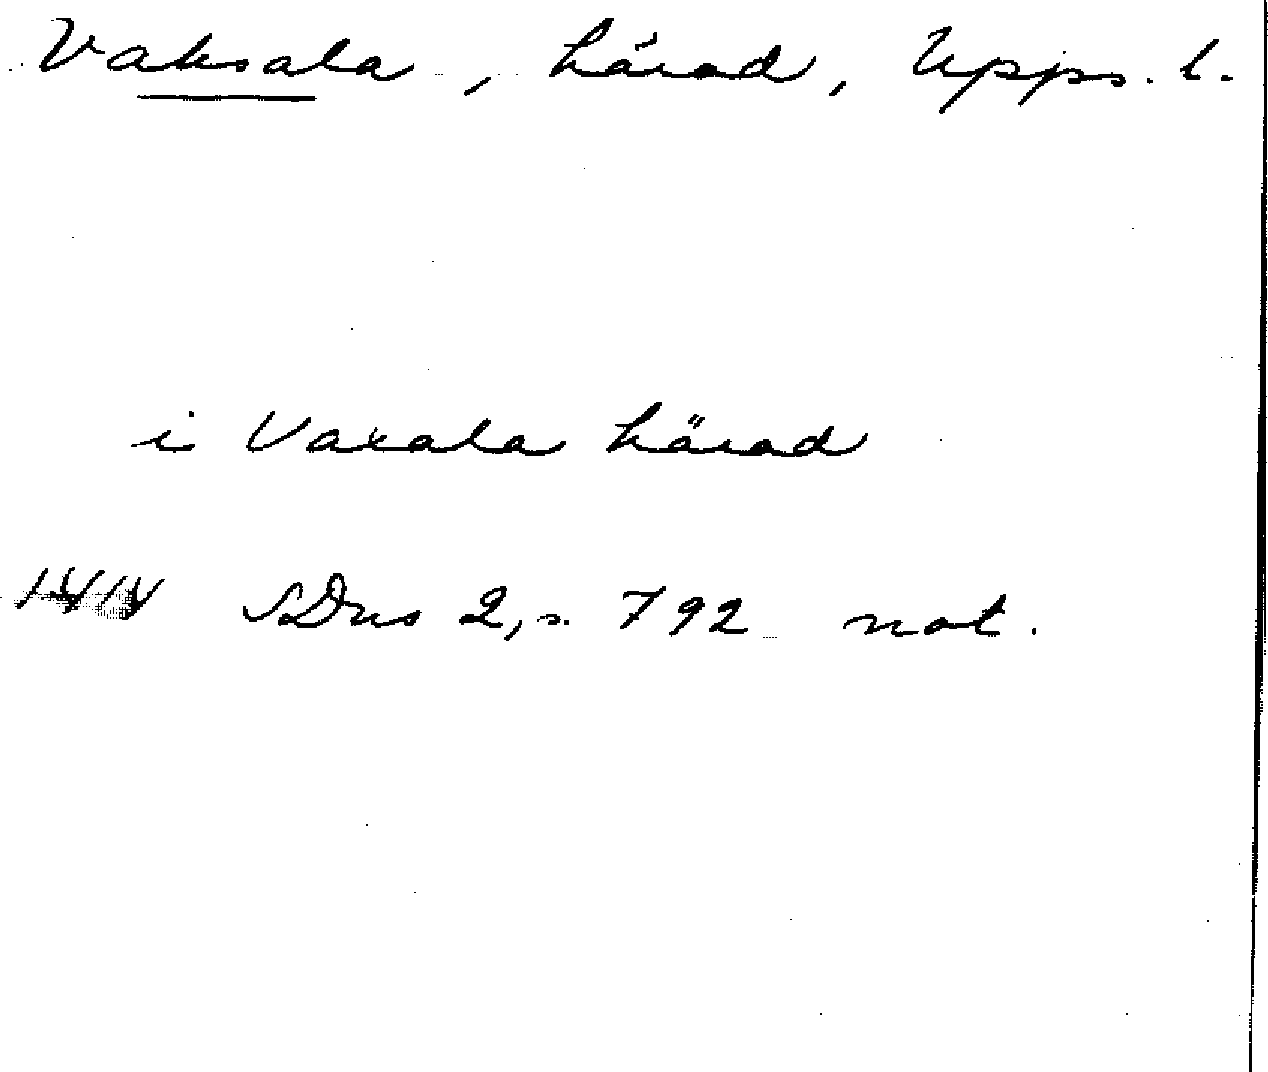 Vaksala, härad, Upps. l.
i Vaxala härad
1414 SDns 2, s. 792 not.